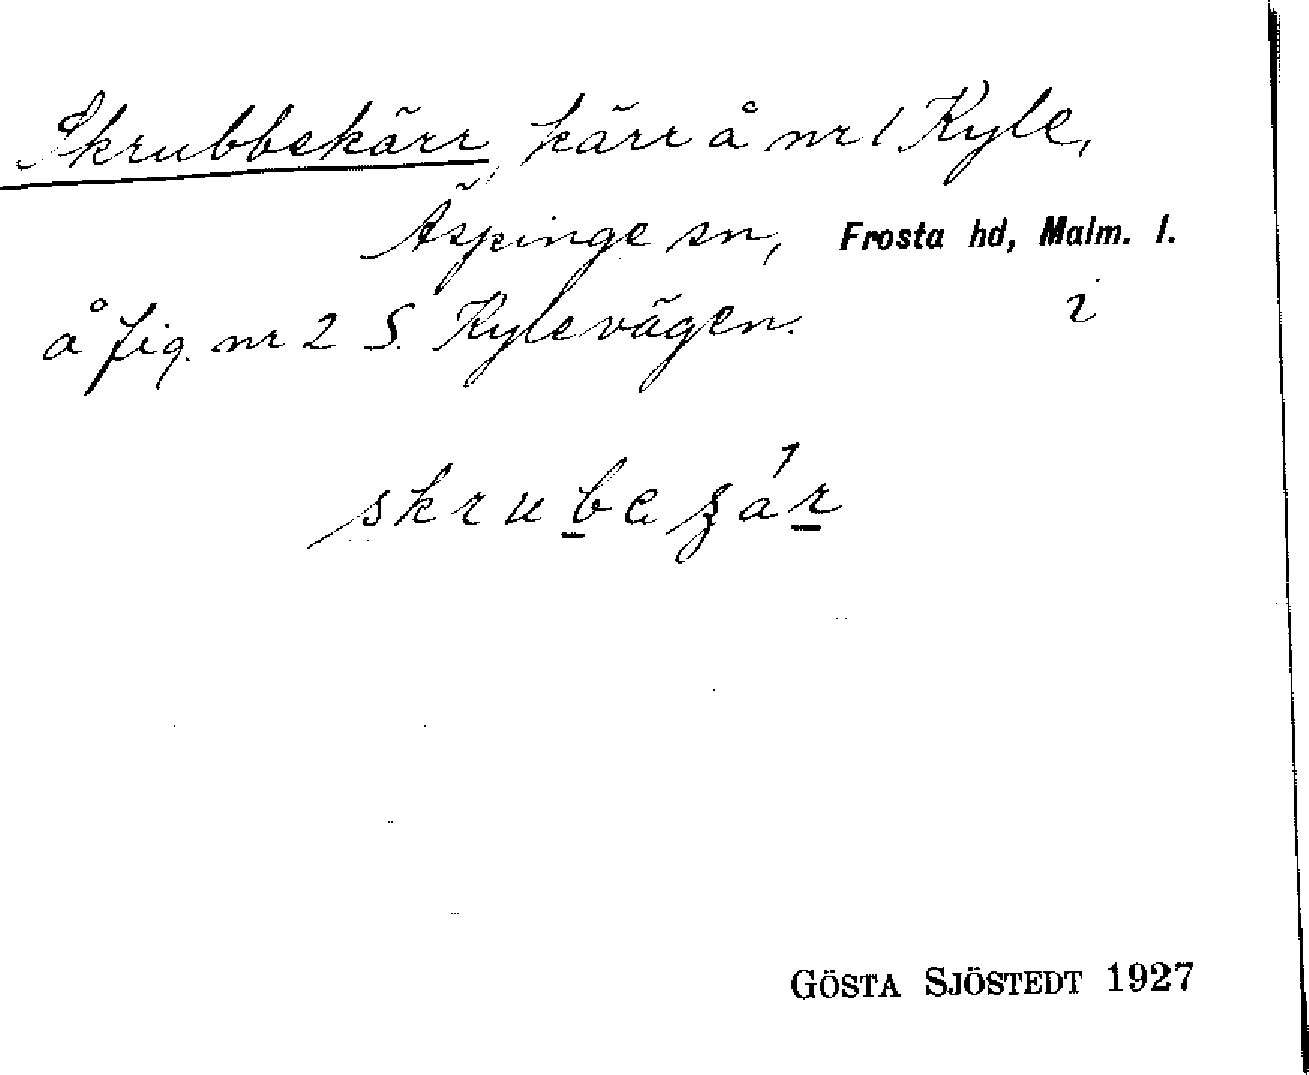 Skrubbekärr, kärr å nr 1 Kyle,
Äspinge sn, Frosta hd, Malm. l.
å fig. nr 2 S. Kylevägen. i
GÖSTA SJÖSTEDT 1927